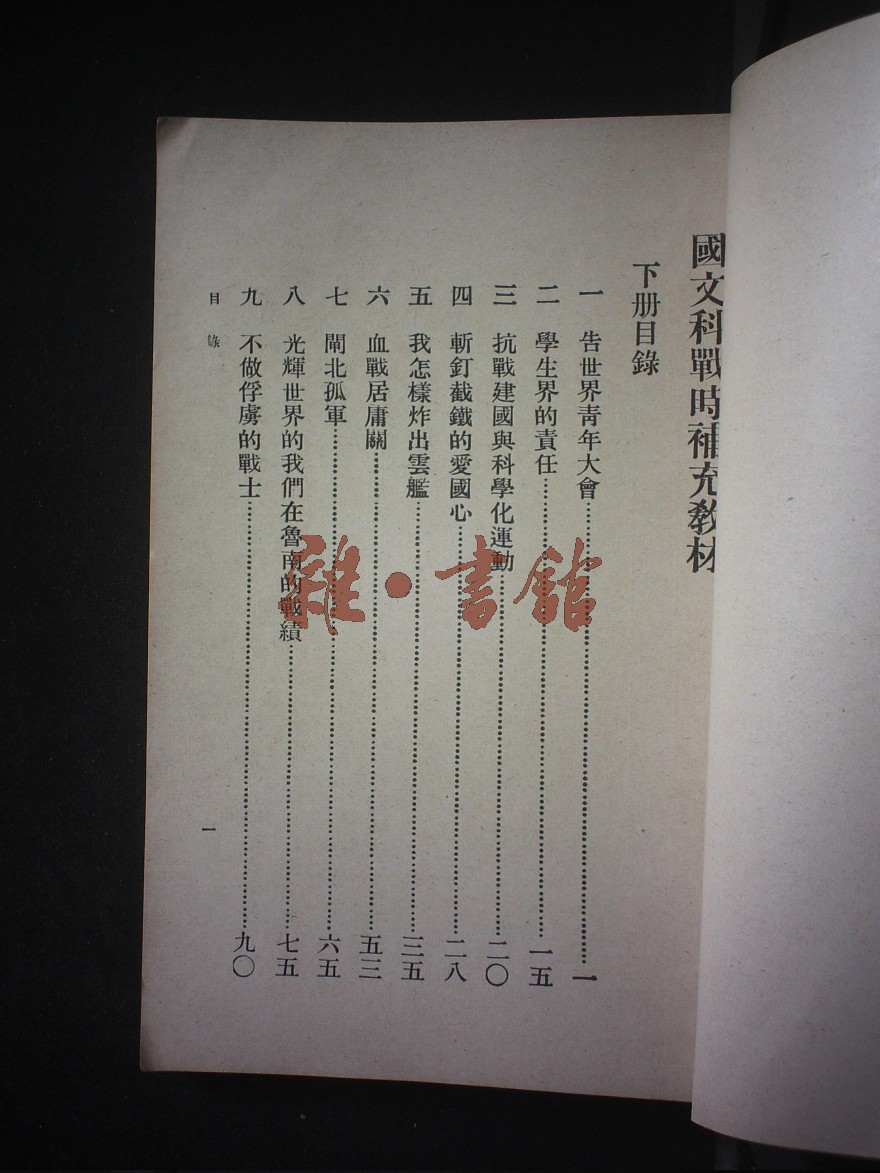 國文科戰時補充教材
下册目錄
一 告世界青年大會……一
二 學生界的責任……一五
三 抗戰建國與科學化運動……二〇
四 斬釘截鐵的愛國心……二八
五 我怎樣炸出雲艦……三五
六 血戰居庸關……五三
七 閘北孤軍……六五
八 光輝世界的我們在魯南的戰績……七五
九 不做俘虜的戰士……九〇
目錄 一
雜·書館